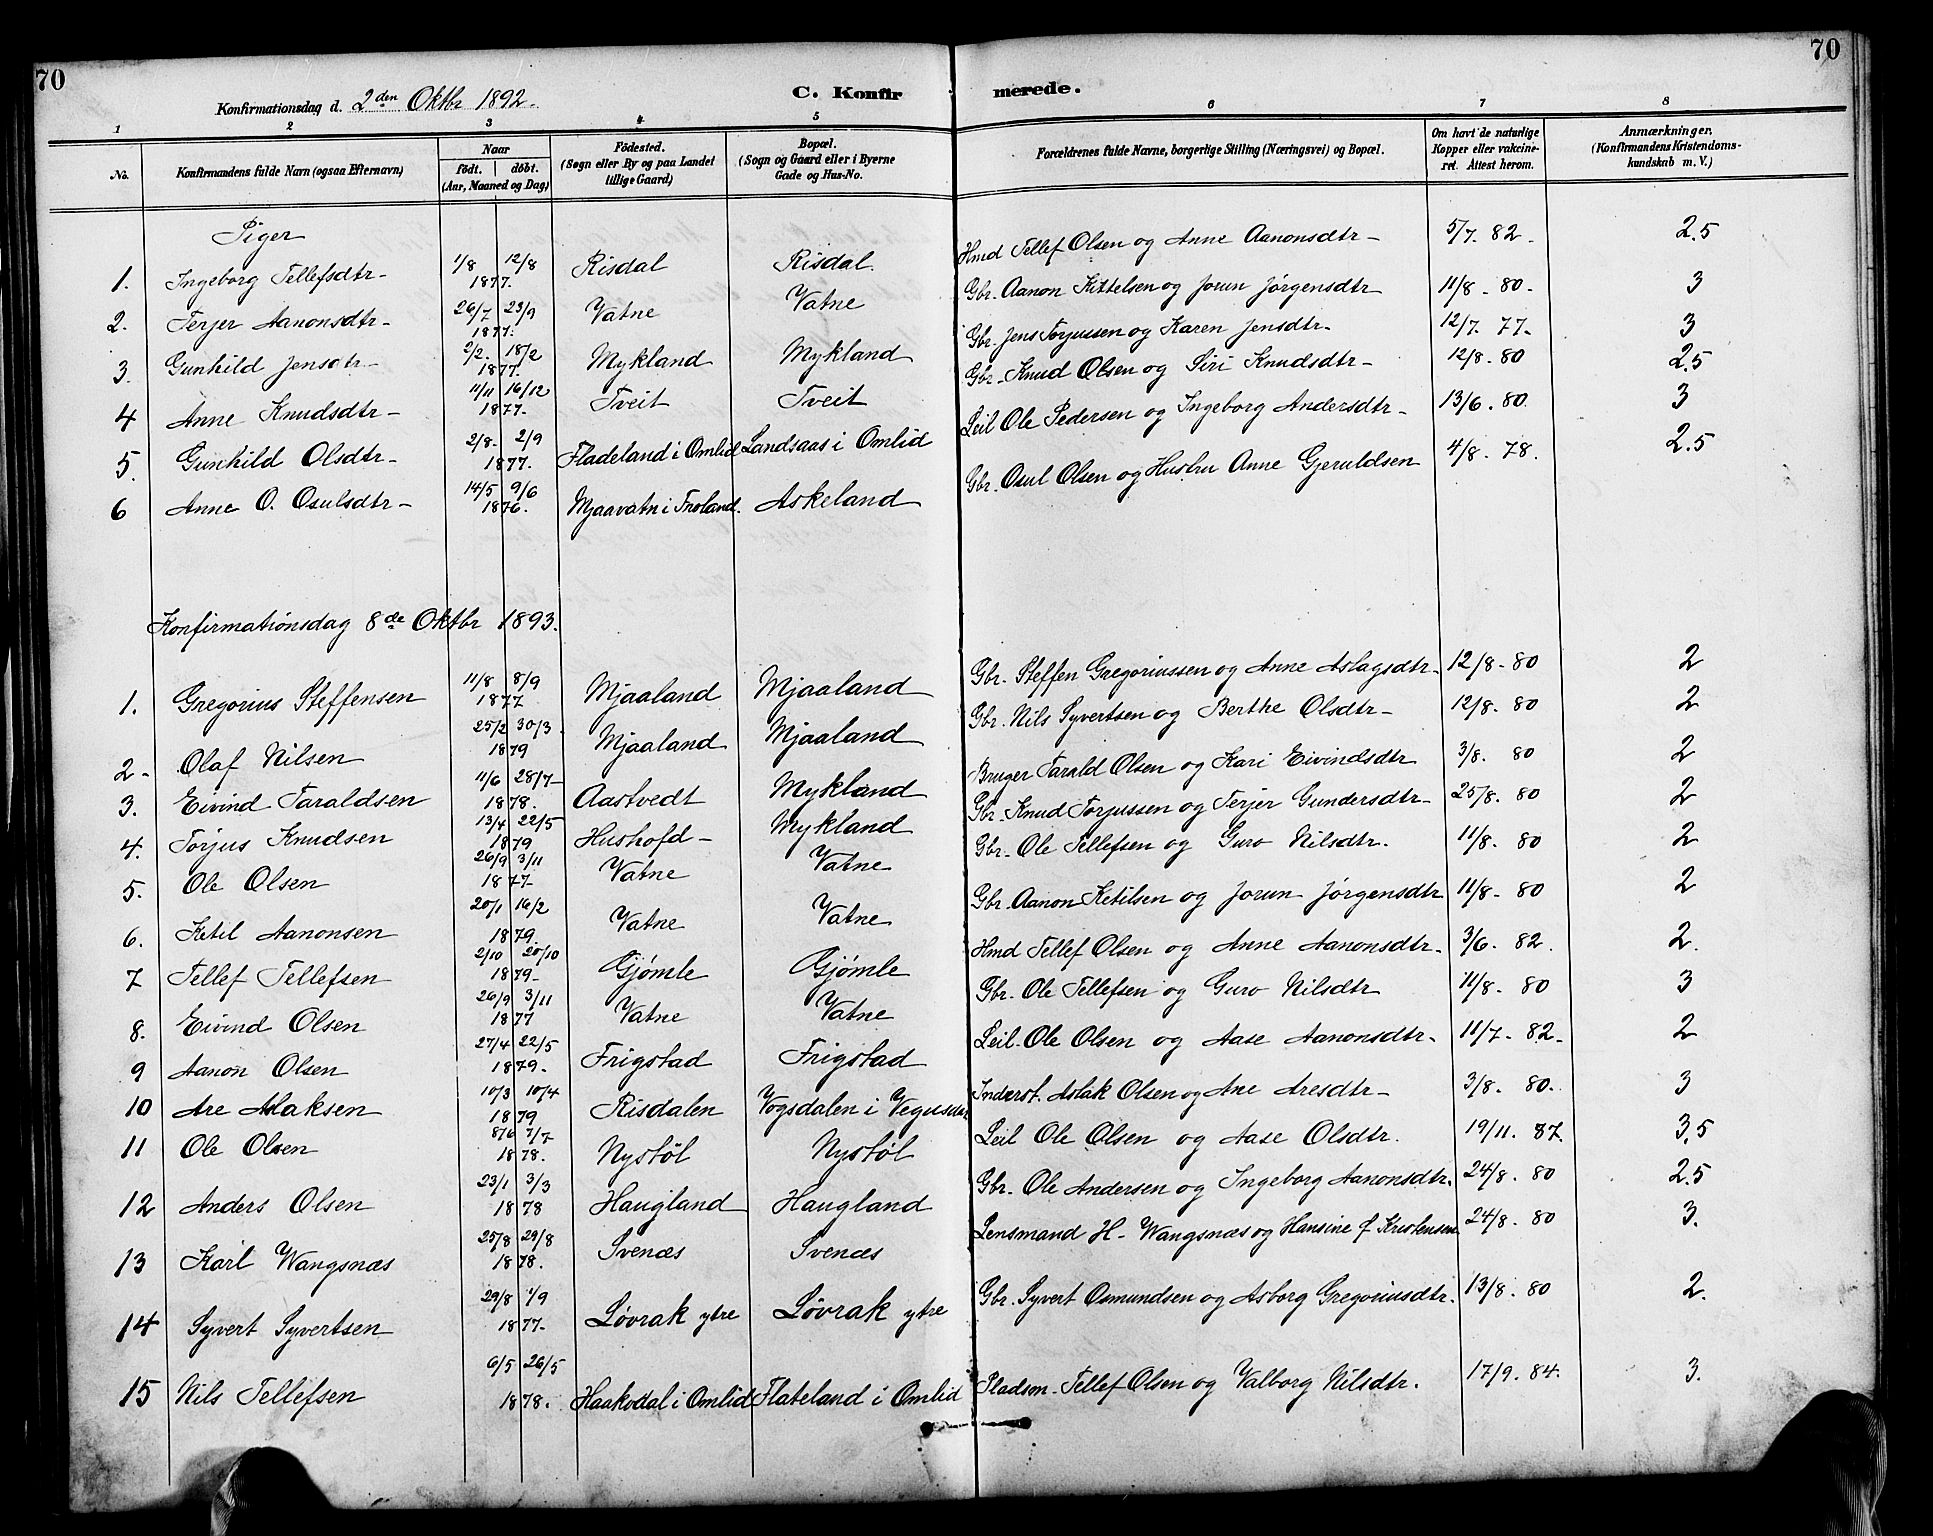 70
70
Konfirmationsdag d. 2den Oktbr 1892.
C. Konfirmerede.
1 2 3 4 5 6 7 8
No. | Konfirmandens fulde Navn (ogsaa Efternavn) | Naar födt. | döbt. (Aar, Maaned og Dag) | Födested. (Sogn eller By og paa Landet tillige Gaard) | Bopæl. (Sogn og Gaard eller i Byerne Gade og Hus-No. | Forældrenes fulde Navne, borgerlige Stilling (Næringsvei) og Bopæl. | Om havt de naturlige Kopper eller vakcineret. Attest herom. | Anmærkninger. (Konfirmandens Kristendomskundskab m. V.)
Piger
1. Ingeborg Tellefsdtr- 1/8 12/8 1877. Risdal Risdal. Hmd Tellef Olsen og Anne Aanonsdtr- 5/7. 82. 2.5
2. Terjer Aanonsdtr- 26/7 23/9 1877. Vatne Vatne Gbr. Aanon Kittelsen og Jorun Jørgensdtr 11/8 - 80- 3
3. Gunhild Jensdtr- 2/2. 18/2 1877. Mykland Mykland Gbr. Jens Torjussen og Karen Jensdtr- 12/7. 77. 3
4 Anne Knudsdtr- 11/11 16/12 1877. Tveit Tveit Gbr. Knud Olsen og Siri Knudsdtr- 12/8. 80 2.5
5. Gunhild Olsdtr- 2/8. 2/9 1877. Fladeland i Omlid Landsaas i Omlid Leil Ole Pedersen og Ingeborg Andersdtr- 13/6. 80. 3
6 Anne O. Osulsdtr- 14/5 9/6 1876. Mjaavatn i Froland. Askeland Gbr. Osul Olsen og Hustru Anne Gjeruldsen 4/8. 78. 2.5
Konfirmationsdag 8de Oktbr 1893.
1. Gregorius Steffensen 11/8 8/9 1877 Mjaaland Mjaaland Gbr. Steffen Gregoriussen og Anne Aslagsdtr- 12/8-80 2
2- Olaf Nilsen 25/2 30/3. 1879 Mjaaland Mjaaland Gbr. Nils Syvertsen og Berthe Olsdtr- 12/8. 80 2
3. Eivind Taraldsen 11/6 28/7 1878. Aastvedt Mykland Bruger Tarald Olsen og Kari Eivindsdtr 3/8. 80 2
4. Torjus Knudsen 13/4 22/5 1879 Hushofd- Mykland Gbr. Knud Torjussen og Terjer Gundersdtr- 25/8. 80 2
5. Ole Olsen 26/9 3/11 1877- Vatne Vatne Gbr- Ole Tellefsen og Guro Nilsdtr. 11/8. 80 2
6. Ketil Aanonsen 20/1 16/2 1879. Vatne Vatne Gbr. Aanon Ketilsen og Jorun Jørgensdtr 11/8- 80 2
7 Tellef Tellefsen 2/10 20/10 1879- Gjømle Gjømle Hmd Tellef Olsen og Anne Aanonsdtr. 3/6. 82. 2.
8. Eivind Olsen 26/9 3/11 1877 Vatne Vatne Gbr. Ole Tellefsen og Guro Nilsdtr 11/8. 80 3
9 Aanon Olsen 27/4 22/5 1879. Frigstad Frigstad Leil. Ole Olsen og Aase Aanonsdtr. 11/7. 82. 2
10 Are Aslaksen 10/3 10/4 1879 Risdalen Vogsdalen i Inderst. Aslak Olsen og Ane Aresdtr- 3/8. 80. 3
11 Ole Olsen 8/6 7/7 1878. Nystøl Nystøl Leil Ole Olsen og Aase Olsdtr. 19/11. 87. 3.5
12 Anders Olsen 23/1 3/3 1878 Haugland Haugland Gbr. Ole Andersen og Ingeborg Aanonsdtr. 24/8. 80 2.5
13 Karl Wangsnæs 25/8 29/8 1878. Svenæs Svenæs Lensmand H. Wangsnæs og Hansine f Kristensen 24/8. 80 3.
14 Syvert Syvertsen 29/8 1/9 1877- Løvrak ytre Løvrak ytre Gbr. Syvert Osmundsen og Asborg Gregoriusdtr. 13/8. 80 2.
15 Nils Tellefsen 6/5 26/5 1878. Haakvdal i Omlid Flateland i Omlid Pladsm. Tellef Olsen og Valborg Nilsdtr. 17/9. 84. 3.